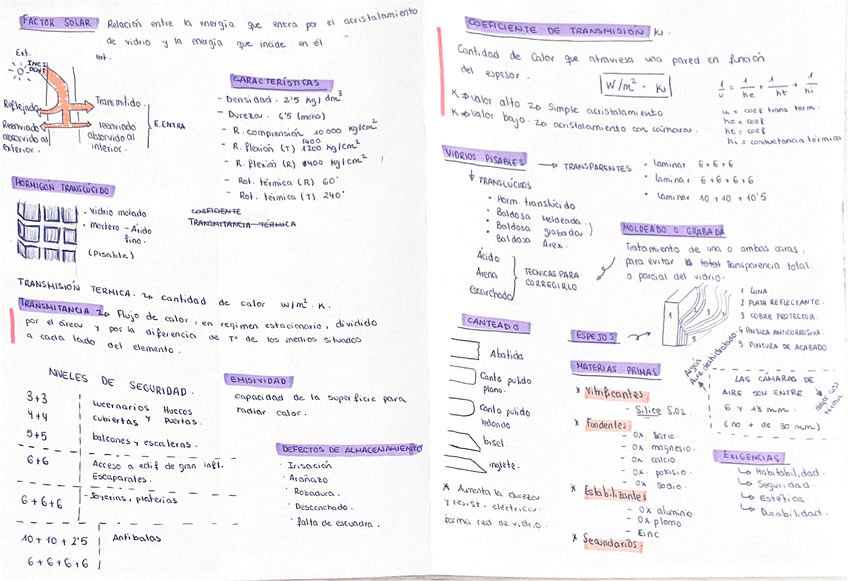 FACTOR SOLAR
Relación entre la energía que entra por el acristalamiento
de vidrio y la energía que incide en él.
Ext. Int.
INCIDENT
Reflejado
Transmitido.
Reenviado absorvido al exterior.
reenviado absorvido al interior.
E.ENTRA
CARACTERÍSTICAS
- Densidad. 2'5 kg/dm³
- Dureza. 6'5 (mohs)
- R. compresión 10 000 kg/cm²
- R. flexión (T) 1200 kg/cm²
1400
- R. flexión (R) 400 kg/cm²
- Rot. térmica (R) 60°
- Rot. térmica (T) 240°
COEFICIENTE
TRANSMITANCIA TÉRMICA
HORMIGÓN TRANSLÚCIDO
· vidrio molado
· mortero - Árido
fino.
(Pisable)
TRANSMISIÓN TERMICA. cantidad de calor W/m² · K.
TRANSMITANCIA Flujo de calor, en regimen estacionario, dividido
por el área y por la diferencia de Tª de los medios situados
a cada lado del elemento.
NIVELES DE SEGURIDAD.
3+3 lucernarios Huecos
4+4 cubiertas y Puertas.
5+5 balcones y escaleras.
6+6 Acceso a edif de gran infl.
Escaparates.
6+6+6 - Joyerias, platerias
10+10+2'5 Antibalas
6+6+6+6
EMISIVIDAD
capacidad de la superficie para
radiar calor.
DEFECTOS DE ALMACENAMIENTO
· Irisación
· Arañazo
· Rozadura.
· Desconchado.
· falta de escuadra.
COEFICIENTE DE TRANSMISIÓN K.
Cantidad de Calor que atraviesa una pared en función
del espesor.
W/m² · K
K valor alto simple acristalamiento
K valor bajo. acristalamiento con cámaras.
1/u = 1/he + 1/ht + 1/hi
u = coef trans term.
he = coef
ht = coef
hi = conductancia térmica
VIDRIOS PISABLES
TRANSPARENTES
• laminar 6+6+6
• laminar 6+6+6+6
• laminar 10+10+10'5
TRANSLÚCIDOS
• Horm translúcido
• Baldosa Moldeada.
• Baldosa grabada
• Baldosa Aren.
Ácido
Arena
Escarchado
TECNICAS PARA
CORREGIRLO
MOLDEADO O GRABADA
Tratamiento de una o ambas caras,
para evitar la total Transparencia total.
o parcial del vidrio.
CANTEADO
Abatida
Canto pulido
plano.
Canto pulido
redondo
bisel.
inglete.
* Aumenta la dureza
y resist. electricu.
forma red de vidrio.
ESPEJOS
1 LUNA
2 PLATA REFLECTANTE.
3 COBRE PROTECTOR.
4 PINTURA ANTICORROSIVA.
5 PINTURA DE ACABADO
MATERIAS PRIMAS
* Vitrificantes
- Sílice SiO2
* Fundentes
- Ox bario.
- Ox magnesio.
- Ox calcio
- Ox potasio.
- Ox sodio.
* Estabilizantes
- Ox aluminio.
- Ox plomo
- Zinc
* Secundarios.
Argón
Aire deshidratado
LAS CÁMARAS DE
AIRE SON ENTRE
6 y 18 mm.
(no + de 30 mm)
EXIGENCIAS
Habitabilidad.
Seguridad.
estética
Durabilidad.